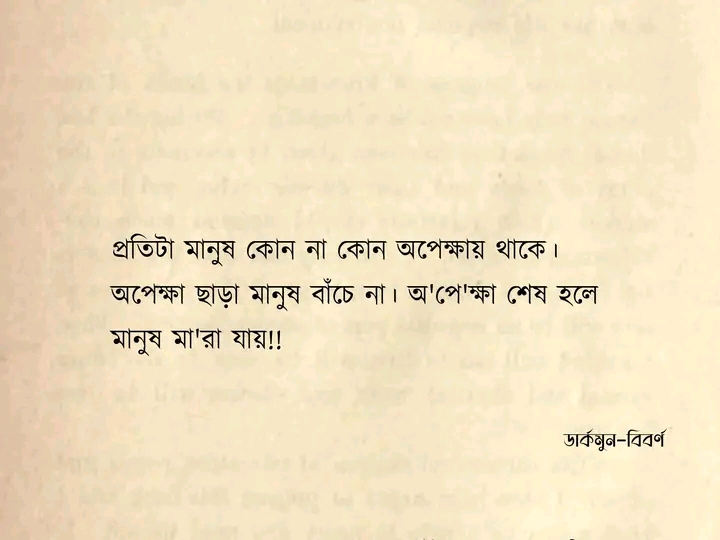 প্রতিটা মানুষ কোন না কোন অপেক্ষায় থাকে।
অপেক্ষা ছাড়া মানুষ বাঁচে না। অ'পে'ক্ষা শেষ হলে
মানুষ মা'রা যায়!!
ডার্কমুন-বিবর্ণ